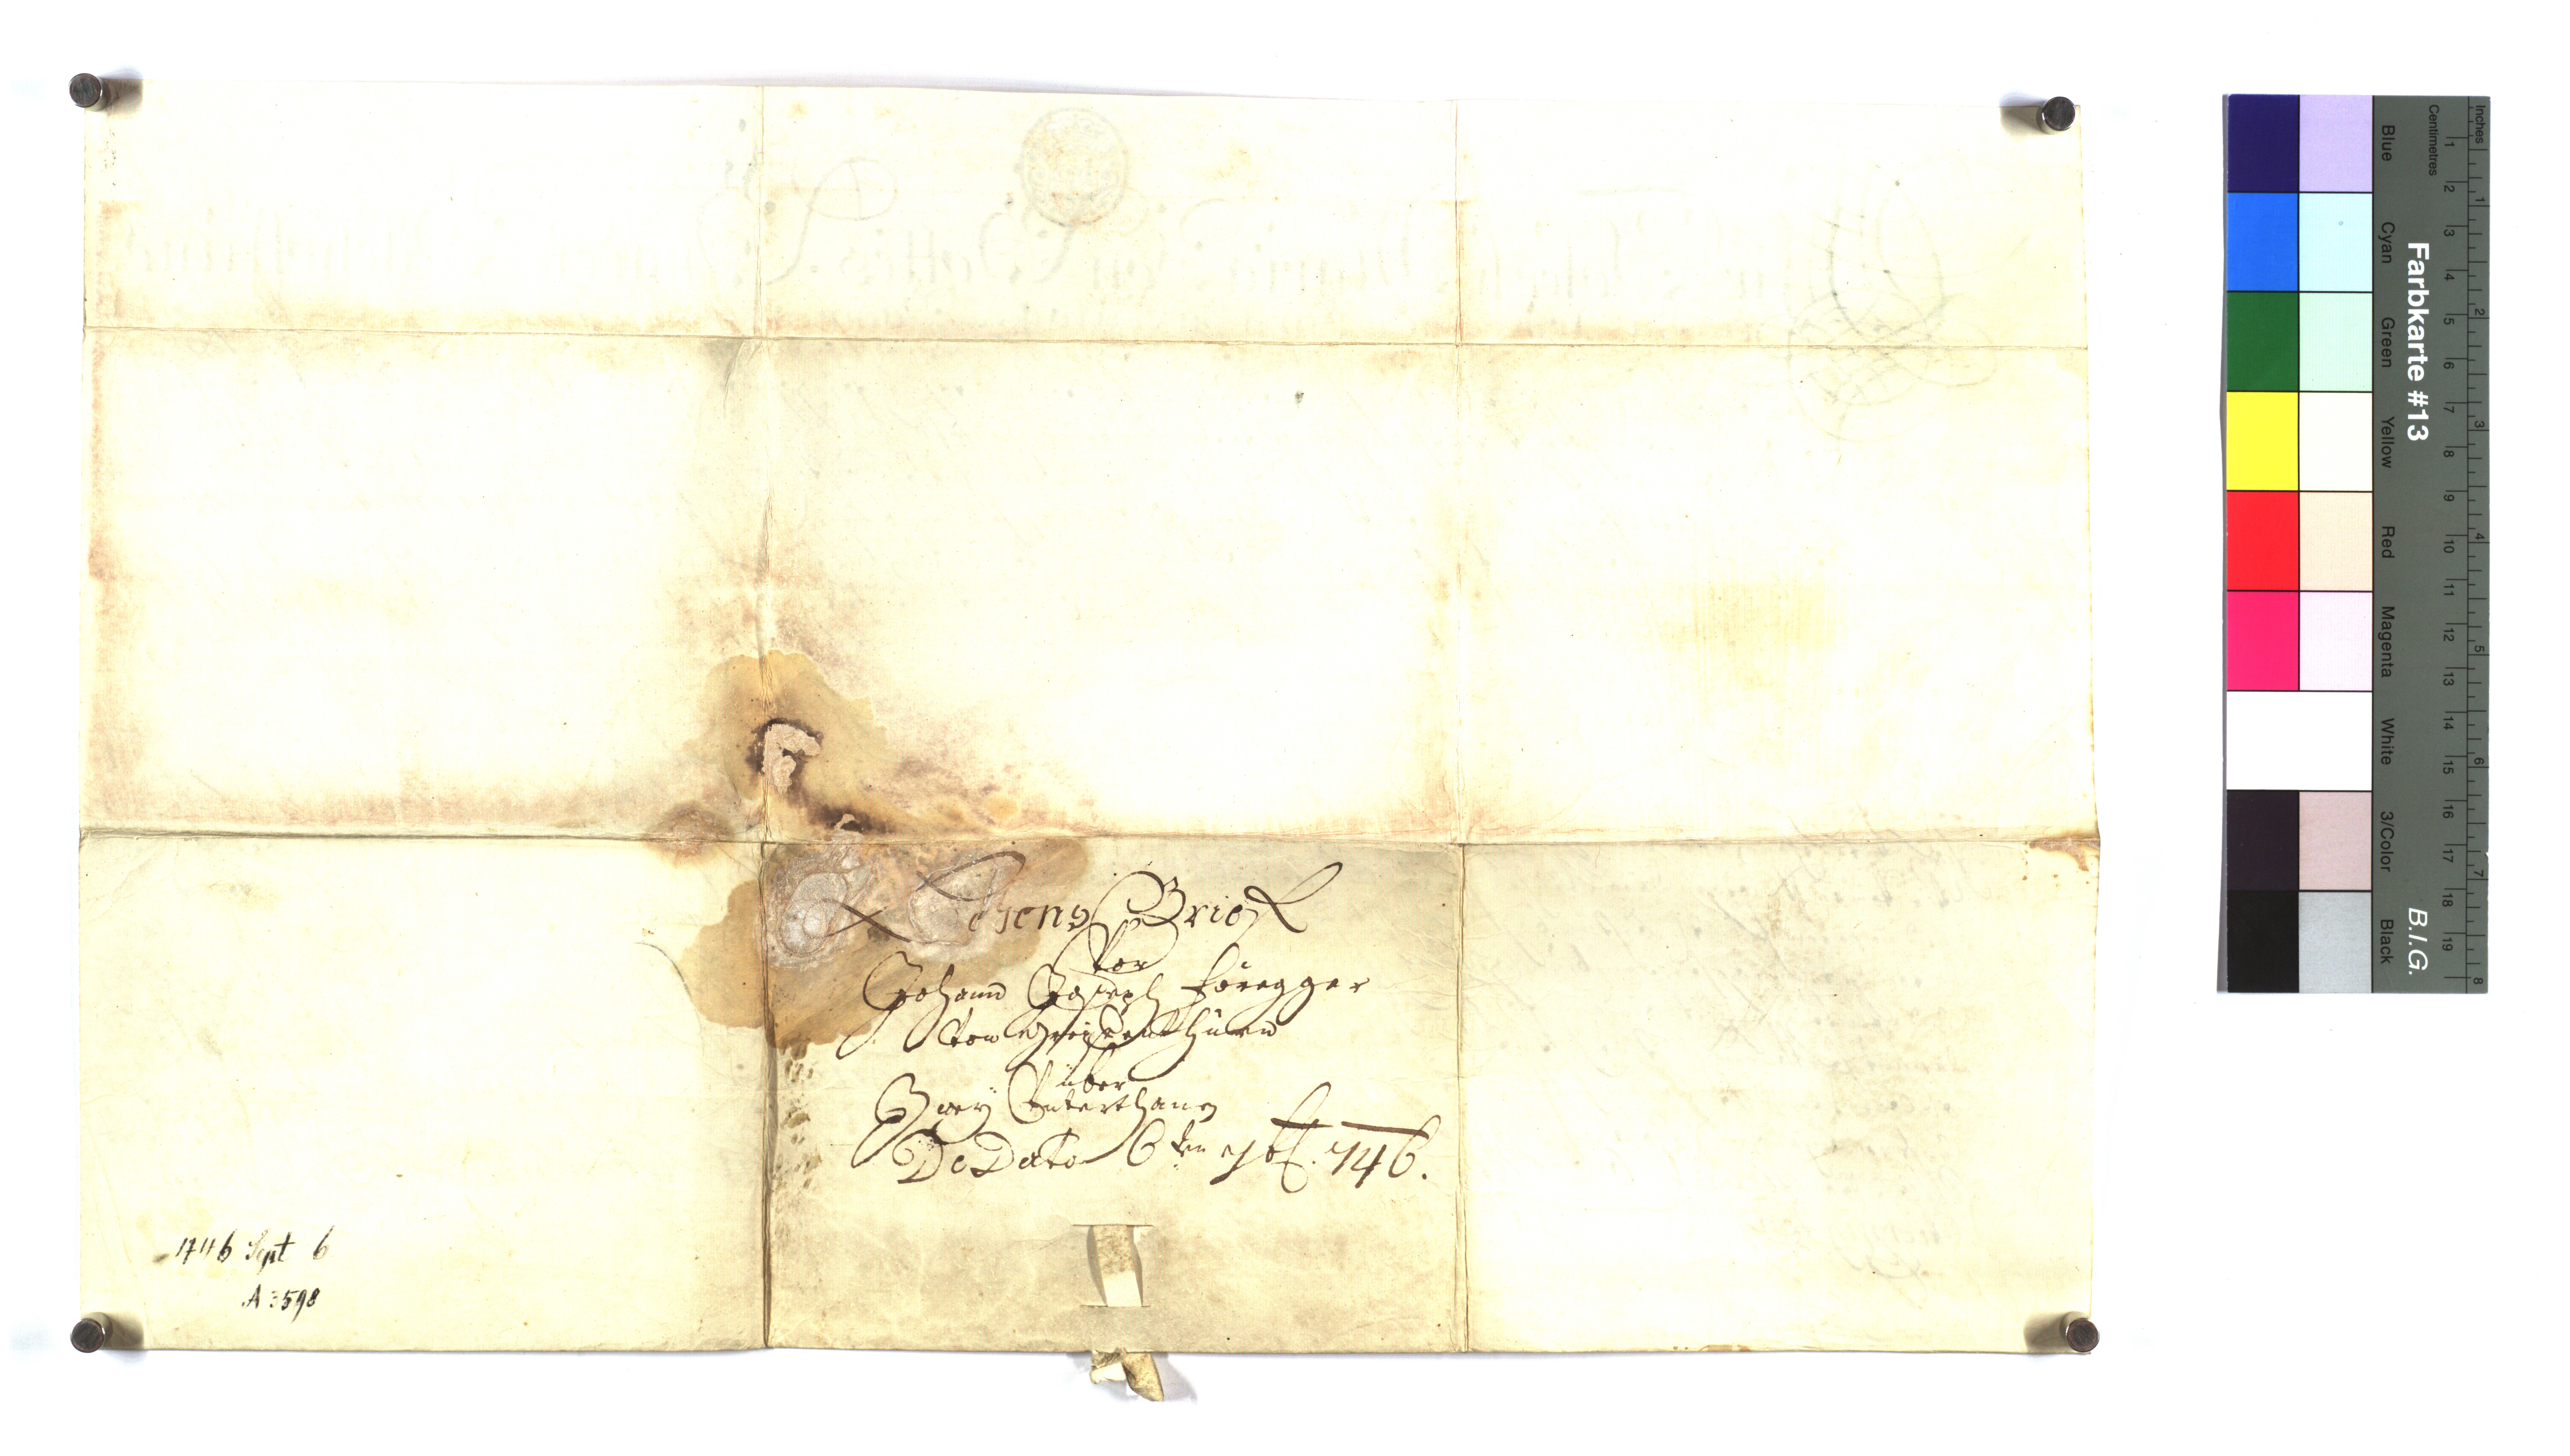 Lehens Brief
Vor
Johann Joseph Föregger
von Greiffenthurn
über
Zwey Unterthanen
De Dato 6 ten 7bf. 746.
1746 Sept 6
A 3598
Inches
Centimetres
1 2 3 4 5 6 7 8
1 2 3 4 5 6 7 8 9 10 11 12 13 14 15 16 17 18 19
Blue Cyan Green Yellow Red Magenta White 3/Color Black
Farbkarte #13 B.I.G.